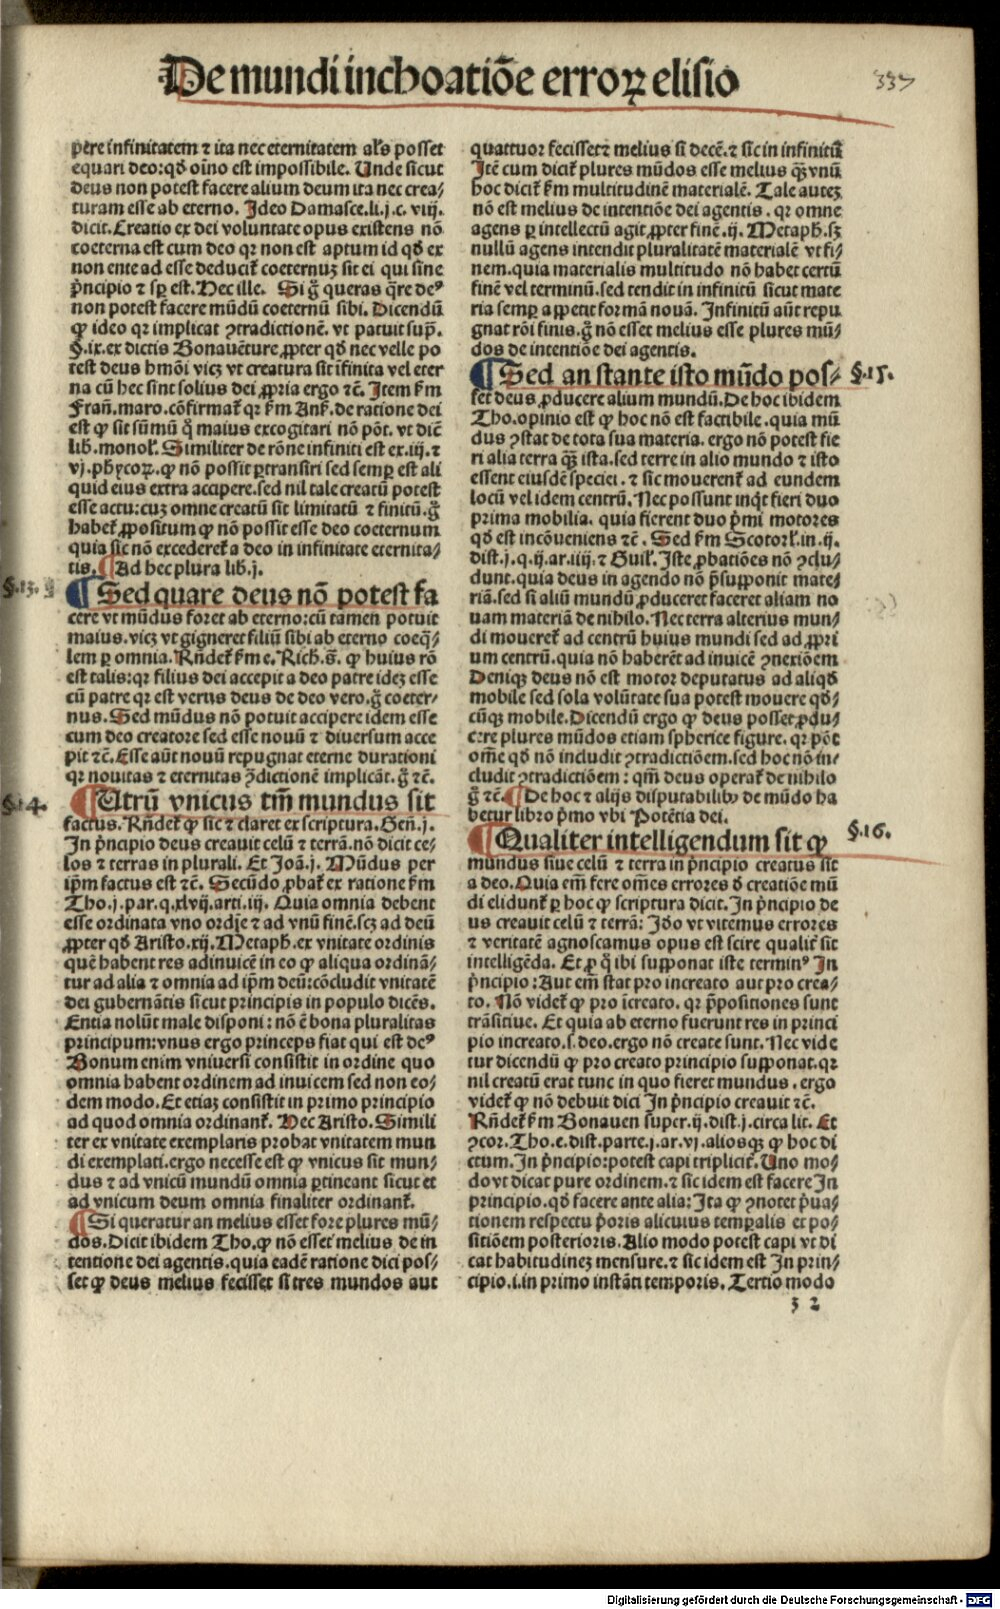 De mundi inchoatiōe erroꝝ elisio
337
pere infinitatem ⁊ ita nec eternitatem al's posset
equari deo: qđ oīno est impossibile. Unde sicut
deus non potest facere alium deum ita nec crea⸗
turam esse ab eterno. Ideo Damasce.li.j.c. viij.
dicit. Creatio ex dei voluntate opus existens nō
coeterna est cum deo qꝛ non est aptum id qđ ex
non ente ad esse deducit̄ coeternuꝫ sit ei qui sine
p̄ncipio ⁊ sp̄ est. Hec ille. Si g̊ queras q̄re deꝰ
non potest facere mūdū coeternū sibi. Dicendū
ꝙ ideo qꝛ implicat ꝯtradictionē. vt patuit sup̄.
§.ix. ex dictis Bonauēture ꝓpter qđ nec velle po
test deus hmōi vicꝫ vt creatura sit īfinita vel eter
na cū hec sint solius dei ꝓpria ergo ⁊c̄. Item ẜm
Fran̄. maro. cōfirmat̄ qꝛ ẜm Anẜ. de ratione dei
est ꝙ sit sūmū q̊ maius excogitari nō pōt. vt dič
lib. monoł. Similiter de rōne infiniti est ex.iij. ⁊
vj. phycoꝝ. ꝙ nō possit ꝑtransiri sed semꝑ est ali
quid eius extra accipere. sed nil tale creatū potest
esse actu: cuꝫ omne creatū sit limitatū ⁊ finitū. g̊
habet̄ ꝓpositum ꝙ nō possit esse deo coeternum
quia sic nō excederet̄ a deo in infinitate eternita⸗
tis. ¶ Ad hec plura lib.j.
§.13.
¶ Sed quare deus nō potest fa
cere vt mūdus foret ab eterno: cū tamen potuit
maius. vicꝫ vt gigneret filiū sibi ab eterno coeq̄⸗
lem ꝑ omnia. Rn̄det̄ ẜm e. Rich. s̄. ꝙ huius rō
est talis: qꝛ filius dei accepit a deo patre ideꝫ esse
cū patre qꝛ est verus deus de deo vero. g̊ coeter⸗
nus. Sed mūdus nō potuit accipere idem esse
cum deo creatore sed esse nouū ⁊ diuersum acce
pit ⁊c̄. Esse aūt nouū repugnat eterne durationi
qꝛ nouitas ⁊ eternitas ꝯ̄dictionē implicāt. g̊ ⁊c̄.
§.14.
¶ Utrū vnicus tm̄ mundus sit
factus. Rn̄det̄ ꝙ sic ⁊ claret ex scriptura. Gen̄.j.
In p̄ncipio deus creauit celū ⁊ terrā. nō dicit ce⸗
los ⁊ terras in plurali. Et Joā.j. Mūdus per
ip̄m factus est ⁊c̄. Secūdo ꝓbat̄ ex ratione ẜm
Tho.j.par.q.xlvij.arti.iij. Quia omnia debent
esse ordinata vno ordīe ⁊ ad vnū finē. scꝫ ad deū
ꝓpter qđ Aristo.xij. Metaph. ex vnitate ordinis
quē habent res adinuicē in eo ꝙ aliqua ordinā⸗
tur ad alia ⁊ omnia ad ip̄m deū: cōcludit vnitatē
dei gubernātis sicut principis in populo dicēs.
Entia nolūt male disponi: nō ē bona pluralitas
principum: vnus ergo princeps fiat qui est deꝰ
Bonum enim vniuersi consistit in ordine quo
omnia habent ordinem ad inuicem sed non eo⸗
dem modo. Et etiaꝫ consistit in primo principio
ad quod omnia ordinant̄. Hec Aristo. Simili
ter ex vnitate exemplaris probat vnitatem mun
di exemplati. ergo necesse est ꝙ vnicus sit mun⸗
dus ⁊ ad vnicū mundū omnia ꝑtineant sicut et
ad vnicum deum omnia finaliter ordinant̄.
¶ Si queratur an melius esset fore plures mū⸗
dos. Dicit ibidem Tho. ꝙ nō esset melius de in
tentione dei agentis. quia eadē ratione dici pos⸗
set ꝙ deus melius fecisset si tres mundos aut
quattuor fecisset ⁊ melius si decē. ⁊ sic in infinitū
Itē cum dicit̄ plures mūdos esse melius qꝫ vnū
hoc dicit̄ ẜm multitudinē materialē. Tale auteꝫ
nō est melius de intentiōe dei agentis. qꝛ omne
agens ꝑ intellectū agit ꝓpter finē.ij. Metaph. sꝫ
nullū agens intendit pluralitatē materialē vt fi⸗
nem. quia materialis multitudo nō habet certū
finē vel terminū. sed tendit in infinitū sicut mate
ria semꝑ appetit formā nouā. Infinitū aūt repu
gnat rōi finis. g̊ nō esset melius esse plures mū⸗
dos de intentiōe dei agentis.
¶ Sed an stante isto mūdo pos⸗
§.15.
set deus ꝓducere alium mundū. De hoc ibidem
Tho. opinio est ꝙ hoc nō est factibile. quia mū
dus ꝯstat de tota sua materia. ergo nō potest fie
ri alia terra qꝫ ista. sed terre in alio mundo ⁊ isto
essent eiusdē speciei. ⁊ sic mouerent̄ ad eundem
locū vel idem centrū. Nec possunt inq̇t fieri duo
prima mobilia. quia fierent duo p̄mi motores
qđ est incōueniens ⁊c̄. Sed ẜm Scotorł. in.ij.
dist.j.q.ij.ar.iiij. ⁊ Guił. Iste ꝓbatiōes nō ꝯclu⸗
dunt. quia deus in agendo nō p̄supponit mate⸗
riā. sed si aliū mundū ꝓduceret faceret aliam no
uam materiā de nihilo. Nec terra alterius mun⸗
di moueret̄ ad centrū huius mundi sed ad ꝓpri
um centrū. quia nō haberēt ad inuicē ꝯnexiōem
Deniqꝫ deus nō est motor deputatus ad aliqđ
mobile sed sola volūtate sua potest mouere qđ⸗
cūqꝫ mobile. Dicendū ergo ꝙ deus posset ꝓdu⸗
cere plures mūdos etiam spherice figure. qꝛ pōt
om̄e qđ nō includit ꝯtradictiōem. sed hoc nō in⸗
cludit ꝯtradictiōem: qm̄ deus operat̄ de nihilo
g̊ ⁊c̄. ¶ De hoc ⁊ alijs disputabilibꝰ de mūdo ha
betur libro p̄mo vbi Potētia dei.
¶ Qualiter intelligendum sit ꝙ
§.16.
mundus siue celū ⁊ terra in p̄ncipio creatus sit
a deo. Quia em̄ fere om̄es errores đ creatiōe mū
di elidunt̄ ꝑ hoc ꝙ scriptura dicit. In p̄ncipio de
us creauit celū ⁊ terrā: Iđo vt vitemus errores
⁊ veritatē agnoscamus opus est scire qualit̄ sit
intelligēda. Et ꝑ q̊ ibi supponat iste terminꝰ In
p̄ncipio: Aut em̄ stat pro increato aut pro crea⸗
to. Nō videt̄ ꝙ pro īcreato. qꝛ p̄positiones sunt
trāsitiue. Et quia ab eterno fuerunt res in princi
pio increato. s. deo. ergo nō create sunt. Nec vide
tur dicendū ꝙ pro creato principio supponat. qꝛ
nil creatū erat tunc in quo fieret mundus. ergo
videt̄ ꝙ nō debuit dici In p̄ncipio creauit ⁊c̄.
Rn̄det̄ ẜm Bonauen super.ij.dist.j.circa lit. Et
ꝯcor. Tho.e.dist.parte.j.ar.vj. aliosqꝫ ꝙ hoc di
ctum. In p̄ncipio: potest capi triplicit̄. Uno mo⸗
do vt dicat pure ordinem. ⁊ sic idem est facere In
principio. qđ facere ante alia: Ita ꝙ ꝯnotet p̄ua⸗
tionem respectu p̄oris alicuius temꝑalis et po⸗
sitiōem posterioris. Alio modo potest capi vt di
cat habitudineꝫ mensure. ⁊ sic idem est In prin⸗
cipio.i. in primo instāti temporis. Tertio modo
ʒ 2
Digitalisierung gefördert durch die Deutsche Forschungsgemeinschaft - DFG